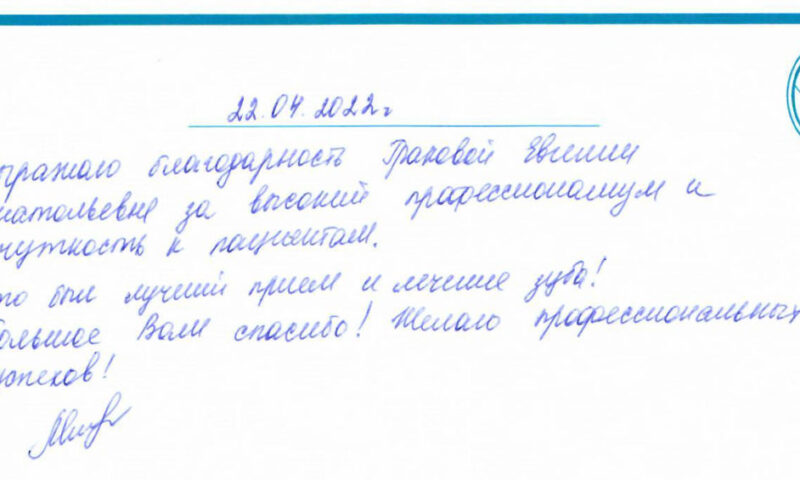 22.04.2022г
ыражаю благодарность Граковой Евгении
натольевне за высокий профессионализм и
чуткость к пациентам.
то был лучший прием и лечение зуба!
большое Вам спасибо! Желаю профессиональных
успехов!